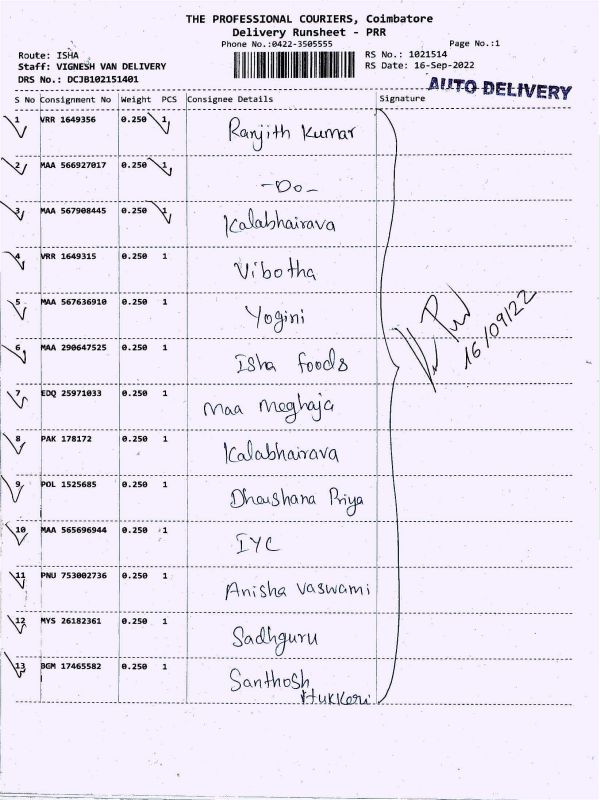 THE PROFESSIONAL COURIERS, Coimbatore
Delivery Runsheet - PRR
Phone No.:0422-3505555 Page No.:1
Route: ISHA RS No.: 1021514
Staff: VIGNESH VAN DELIVERY RS Date: 16-Sep-2022
DRS No.: DCJB102151401
AUTO DELIVERY
S No Consignment No Weight PCS Consignee Details Signature
1 VRR 1649356 0.250 1 Ranjith Kumar
2 MAA 566927017 0.250 1 -Do-
3 MAA 567908445 0.250 1 Kalabhairava
4 VRR 1649315 0.250 1 Vibotha
5 MAA 567636910 0.250 1 Yogini
16/09/22
6 MAA 290647525 0.250 1 Isha foods
7 EDQ 25971033 0.250 1 Maa Meghaja
8 PAK 178172 0.250 1 Kalabhairava
9 POL 1525685 0.250 1 Dharshana Priya
10 MAA 565696944 0.250 1 IYC
11 PNU 753002736 0.250 1 Anisha Vaswami
12 MYS 26182361 0.250 1 Sadhguru
13 BGM 17465582 0.250 1 Santhosh
Hukkeri